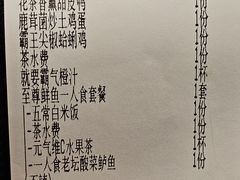 花茶香飘甜皮鸭 1份
鹿茸菌炒土鸡蛋 1份
霸王尖椒蛤蜊鸡 1份
茶水费 1份
就要霸气橙汁 1杯
至尊鲜鱼一人食套餐 1套
|-五常白米饭 1份
|-茶水费 1份
|-元气维C水果茶 1杯
|-一人食老坛酸菜鲈鱼 1份